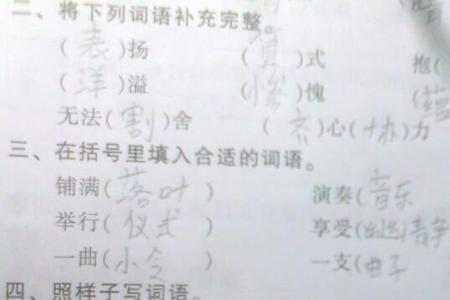 二、将下列词语补充完整。
(表)扬 ( )式 抱(
(洋)溢 (惭)愧 (蕴
无法(割)舍 (齐)心(协)力
三、在括号里填入合适的词语。
铺满(落叶) 演奏(音乐
举行(仪式) 享受(
一曲(小令) 一支(曲子
四、照样子写词语。